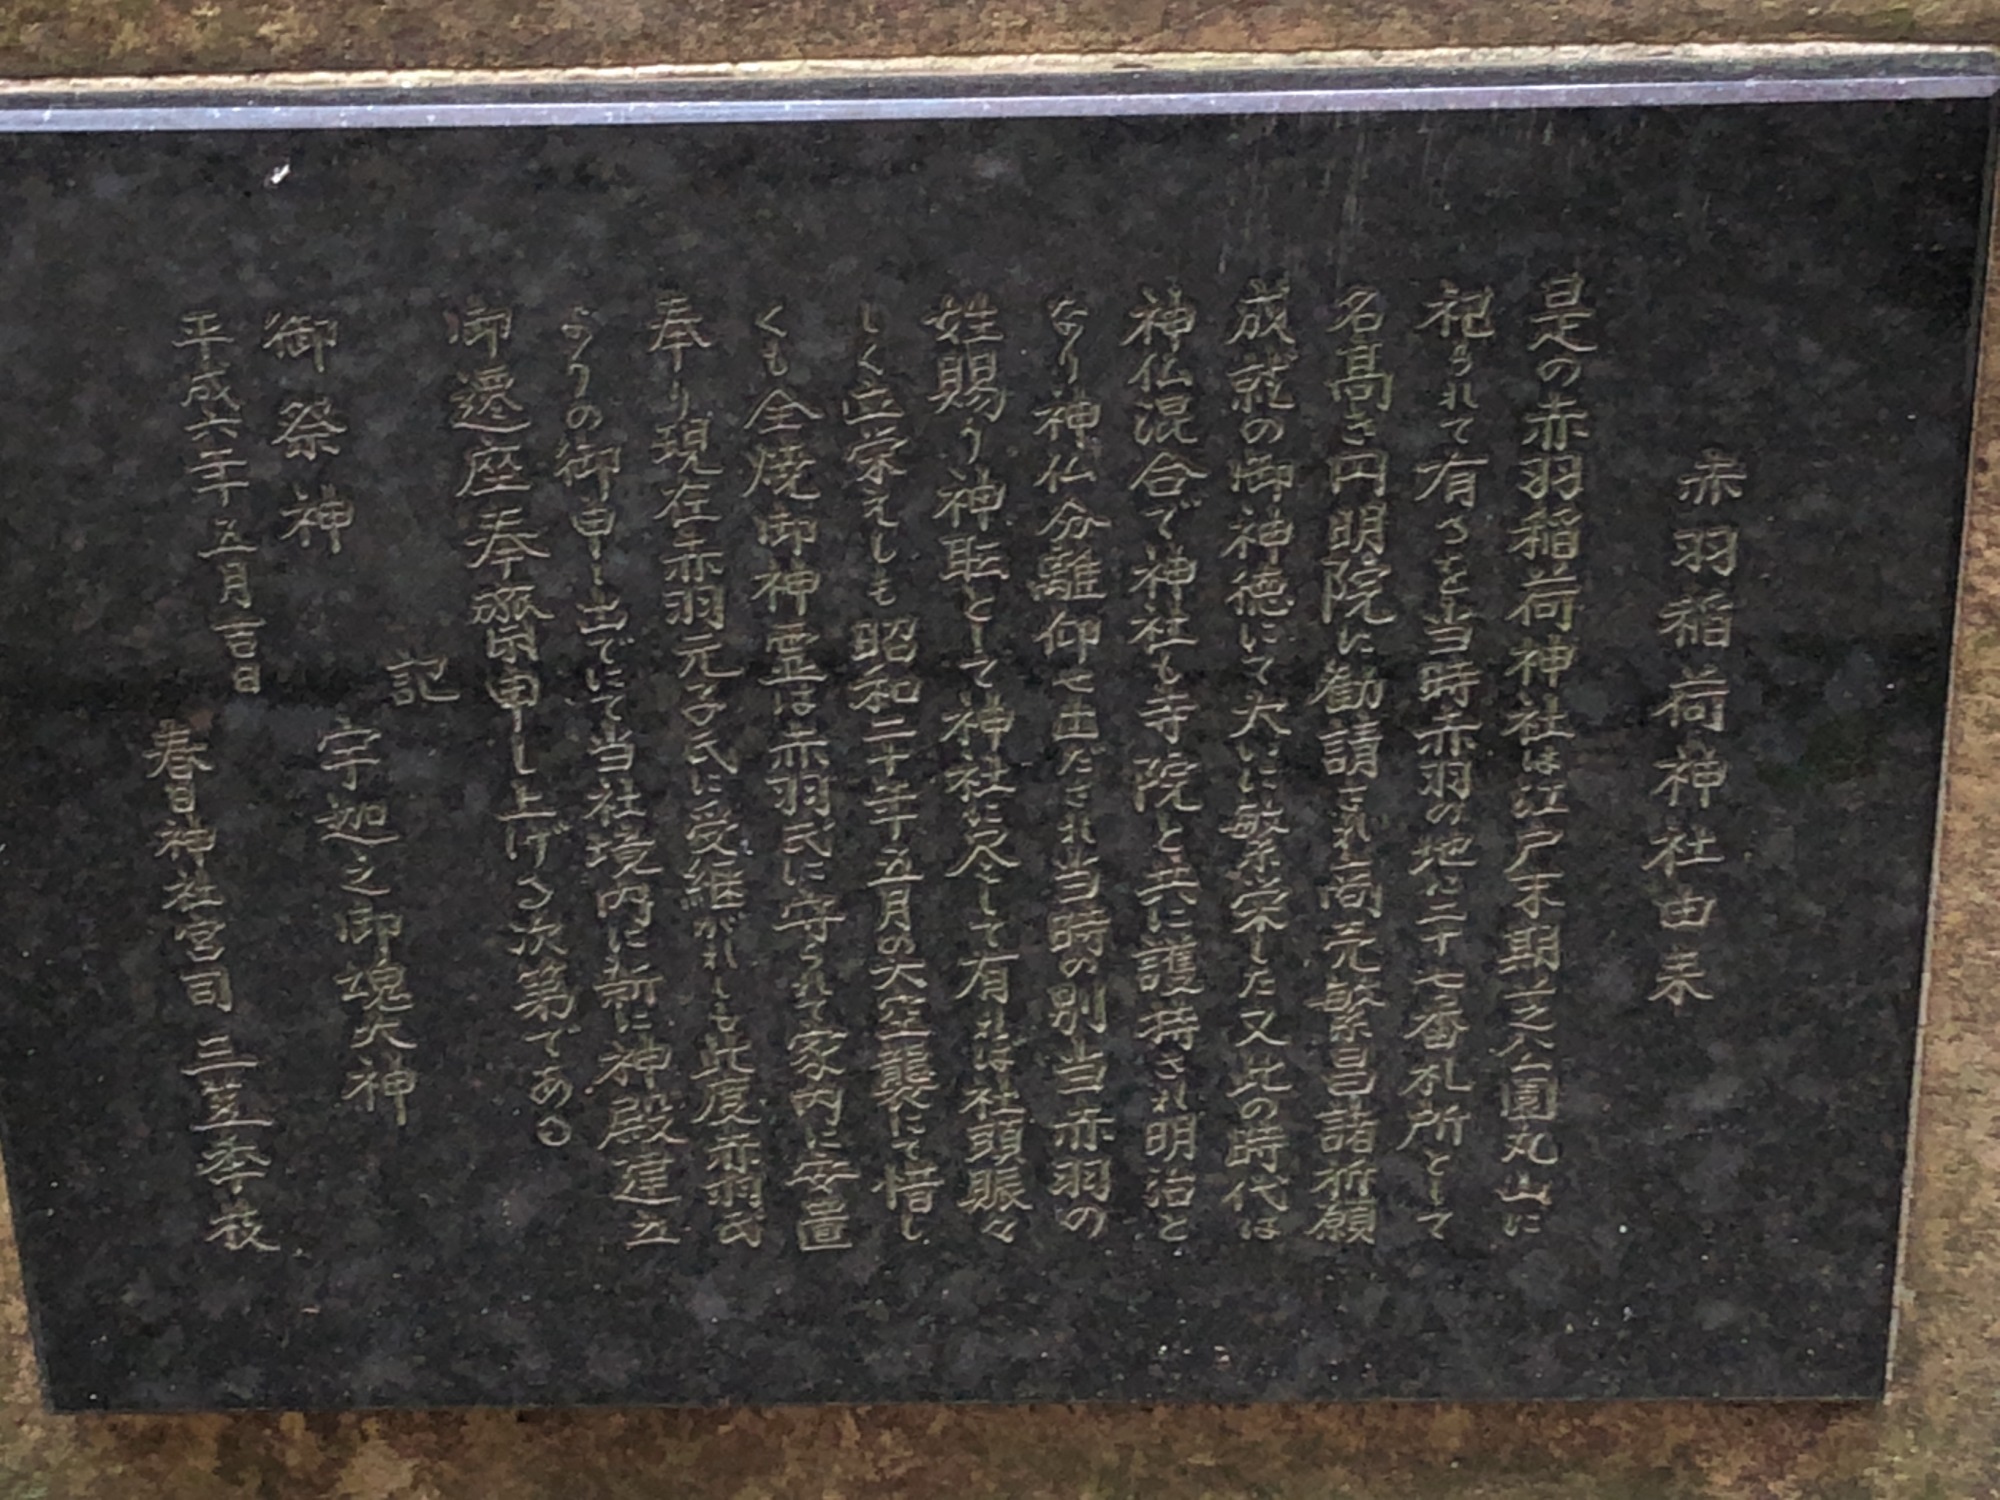 赤羽稲荷神社由来
是の赤羽稲荷神社は江戸末期芝公園丸山に
祀られて有るを当時赤羽の地に二十七番札所として
名高き円明院に勧請され商元繁昌諸祈願
成就の御神徳にて大いに繁栄した又此の時代は
神仏混合で神社も寺院と共に護持され明治と
なり神仏分離仰せ出だされ当時の別当赤羽の
姓賜り神転として神社に尽して有れば社頭賑々
しく立栄えしも昭和二十年五月の大空襲にて惜し
くも全焼御神霊は赤羽氏に守られて家内に安置
奉り現在赤羽元子氏に受継がれしも此度赤羽氏
よりの御申し出でにて当社境内に新に神殿建立
御遷座奉齋申し上げる次第である
記
御祭神 宇迦之御魂大神
平成六年五月吉日
春日神社宮司 三笠季枝